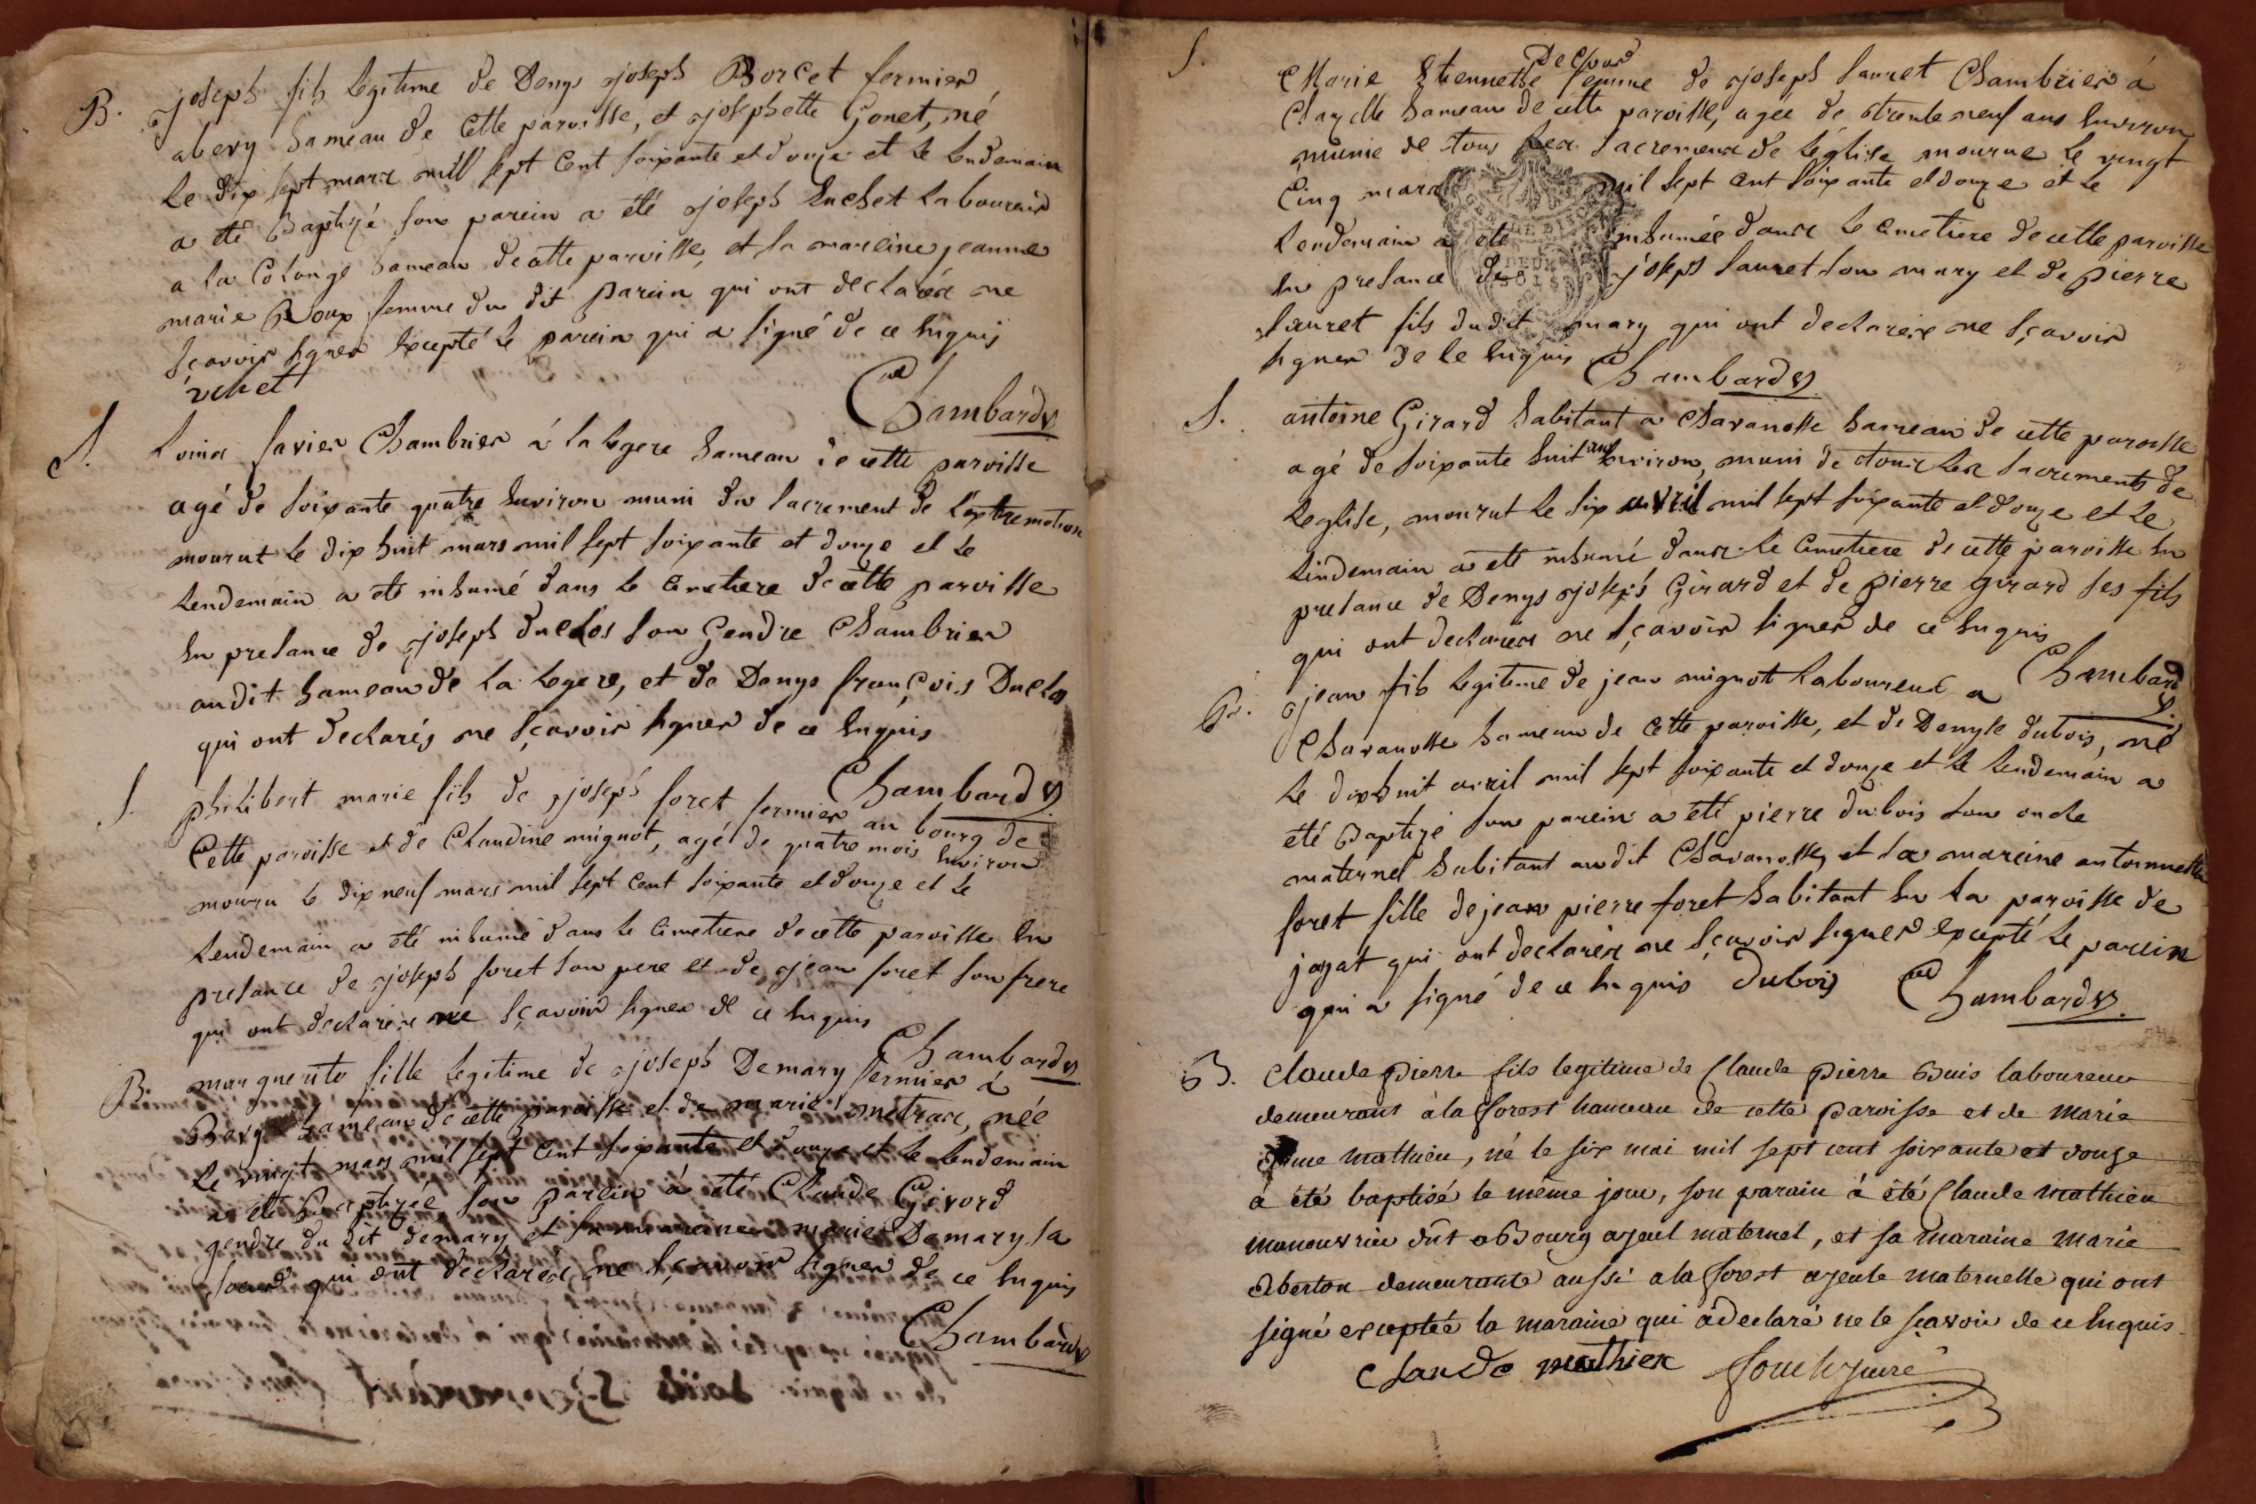 B. joseph fils legitime de Denys joseph Borcet fermier
abevy hameau de cette paroisse, et josephette Gonet, né
le dix sept mars mill sept cent soixante et douze et le lendemain
a eté Baptizé son parein a été joseph Enchet laboureur
a la Colonge hameau de cette paroisse, et la mareine jeanne
marie Roux femme du dit Parein qui ont declarés ne
sçavoir signer Excepté le parein qui a signé de ce Enquis
Chambard v.
S. Louis Savier Chambrier à la legere hameau de cette paroisse
agé de soixante quatre Environ muni du sacrement de l'extremotion
mourut le dix huit mars mil sept soixante et douze et le
lendemain a eté inhumé dans le Cimetiere de cette paroisse
En presance de joseph duclos son Gendre Chambrier
audit hameau de la legere, et de Denys françois Duclos
qui ont declarés ne sçavoir signer de ce Enquis
Chambard v.
S. philibert marie fils de joseph foret fermier au bourg de
Cette paroisse et de Claudine mignot, agé de quatre mois Environ
mouru le dix neuf mars mil sept cent soixante et douze et le
lendemain a été inhumé dans le Cimetiere de cette paroisse En
presance de joseph foret son pere et de jean foret son frere
qui ont declarés ne sçavoir signer de ce Enquis
Chambard v.
B. marguerite fille legitime de joseph Demary fermier à
Bevy hameau de cette paroisse et de marie metras, née
le vingt mars mil sept cent soixante et douze et le lendemain
a eté Baptizée son parein à été Claude Gevord
gendre du dit demary et sa mareine marie Demary sa
soeur qui ont declarés ne sçavoir signer de ce Enquis
Chambard v.
S. Marie Etiennette Decour femme de joseph sauret Chambrier à
Clayette hameau de cette paroisse, agée de trente neuf ans Environ
munie de tous les sacremens de l'église mourue le vingt
Cinq mars mil sept cent soixante et douze et le
lendemain a eté inhumée dans le Cimetiere de cette paroisse
En presance de joseph sauret son mary et de pierre
sauret fils dudit mary qui ont declarés ne sçavoir
signer de Ce Enquis
Chambard v.
S. antoine Girard habitant a Chavanosse hameau de cette paroisse
agé de soixante huit ans Environ, muni de tous les sacrements de
l'eglise, mourut le six avril mil sept soixante et douze et le
lendemain a eté inhumé dans le Cimetiere de cette paroisse En
presance de Denys joseph Girard et de pierre girard ses fils
qui ont declarés ne sçavoir signer de ce Enquis
Chambard v.
B. jean fils legitime de jean mignot laboureur a
Chavanosse hameau de cette paroisse, et de Denyse dubois, né
le dix huit avril mil sept soixante et douze et le lendemain a
été Baptizé son parein a été pierre dubois son oncle
maternel habitant audit Chavanosse, et la mareine antoinette
foret fille de jean pierre foret habitant En la paroisse de
jayat qui ont declarés ne sçavoir signer excepté le parein
qui a signé de ce Enquis dubois Chambard v.
B. Claude Pierre fils legitime de Claude Pierre Buis laboureur
demeurant à la forest hameau de cette Paroisse et de Marie
mathieu, né le six mai mil sept cent soixante et douze
à été baptisé le même jour, son parain à été Claude mathieu
manouvrier dût Bourg ayeul maternel, et sa maraine Marie
Aberton demeurante aussi a la forest ayeule maternelle qui ont
signé exceptée la maraine qui à declaré ne le sçavoir de ce Enquis.
Claude mathieu